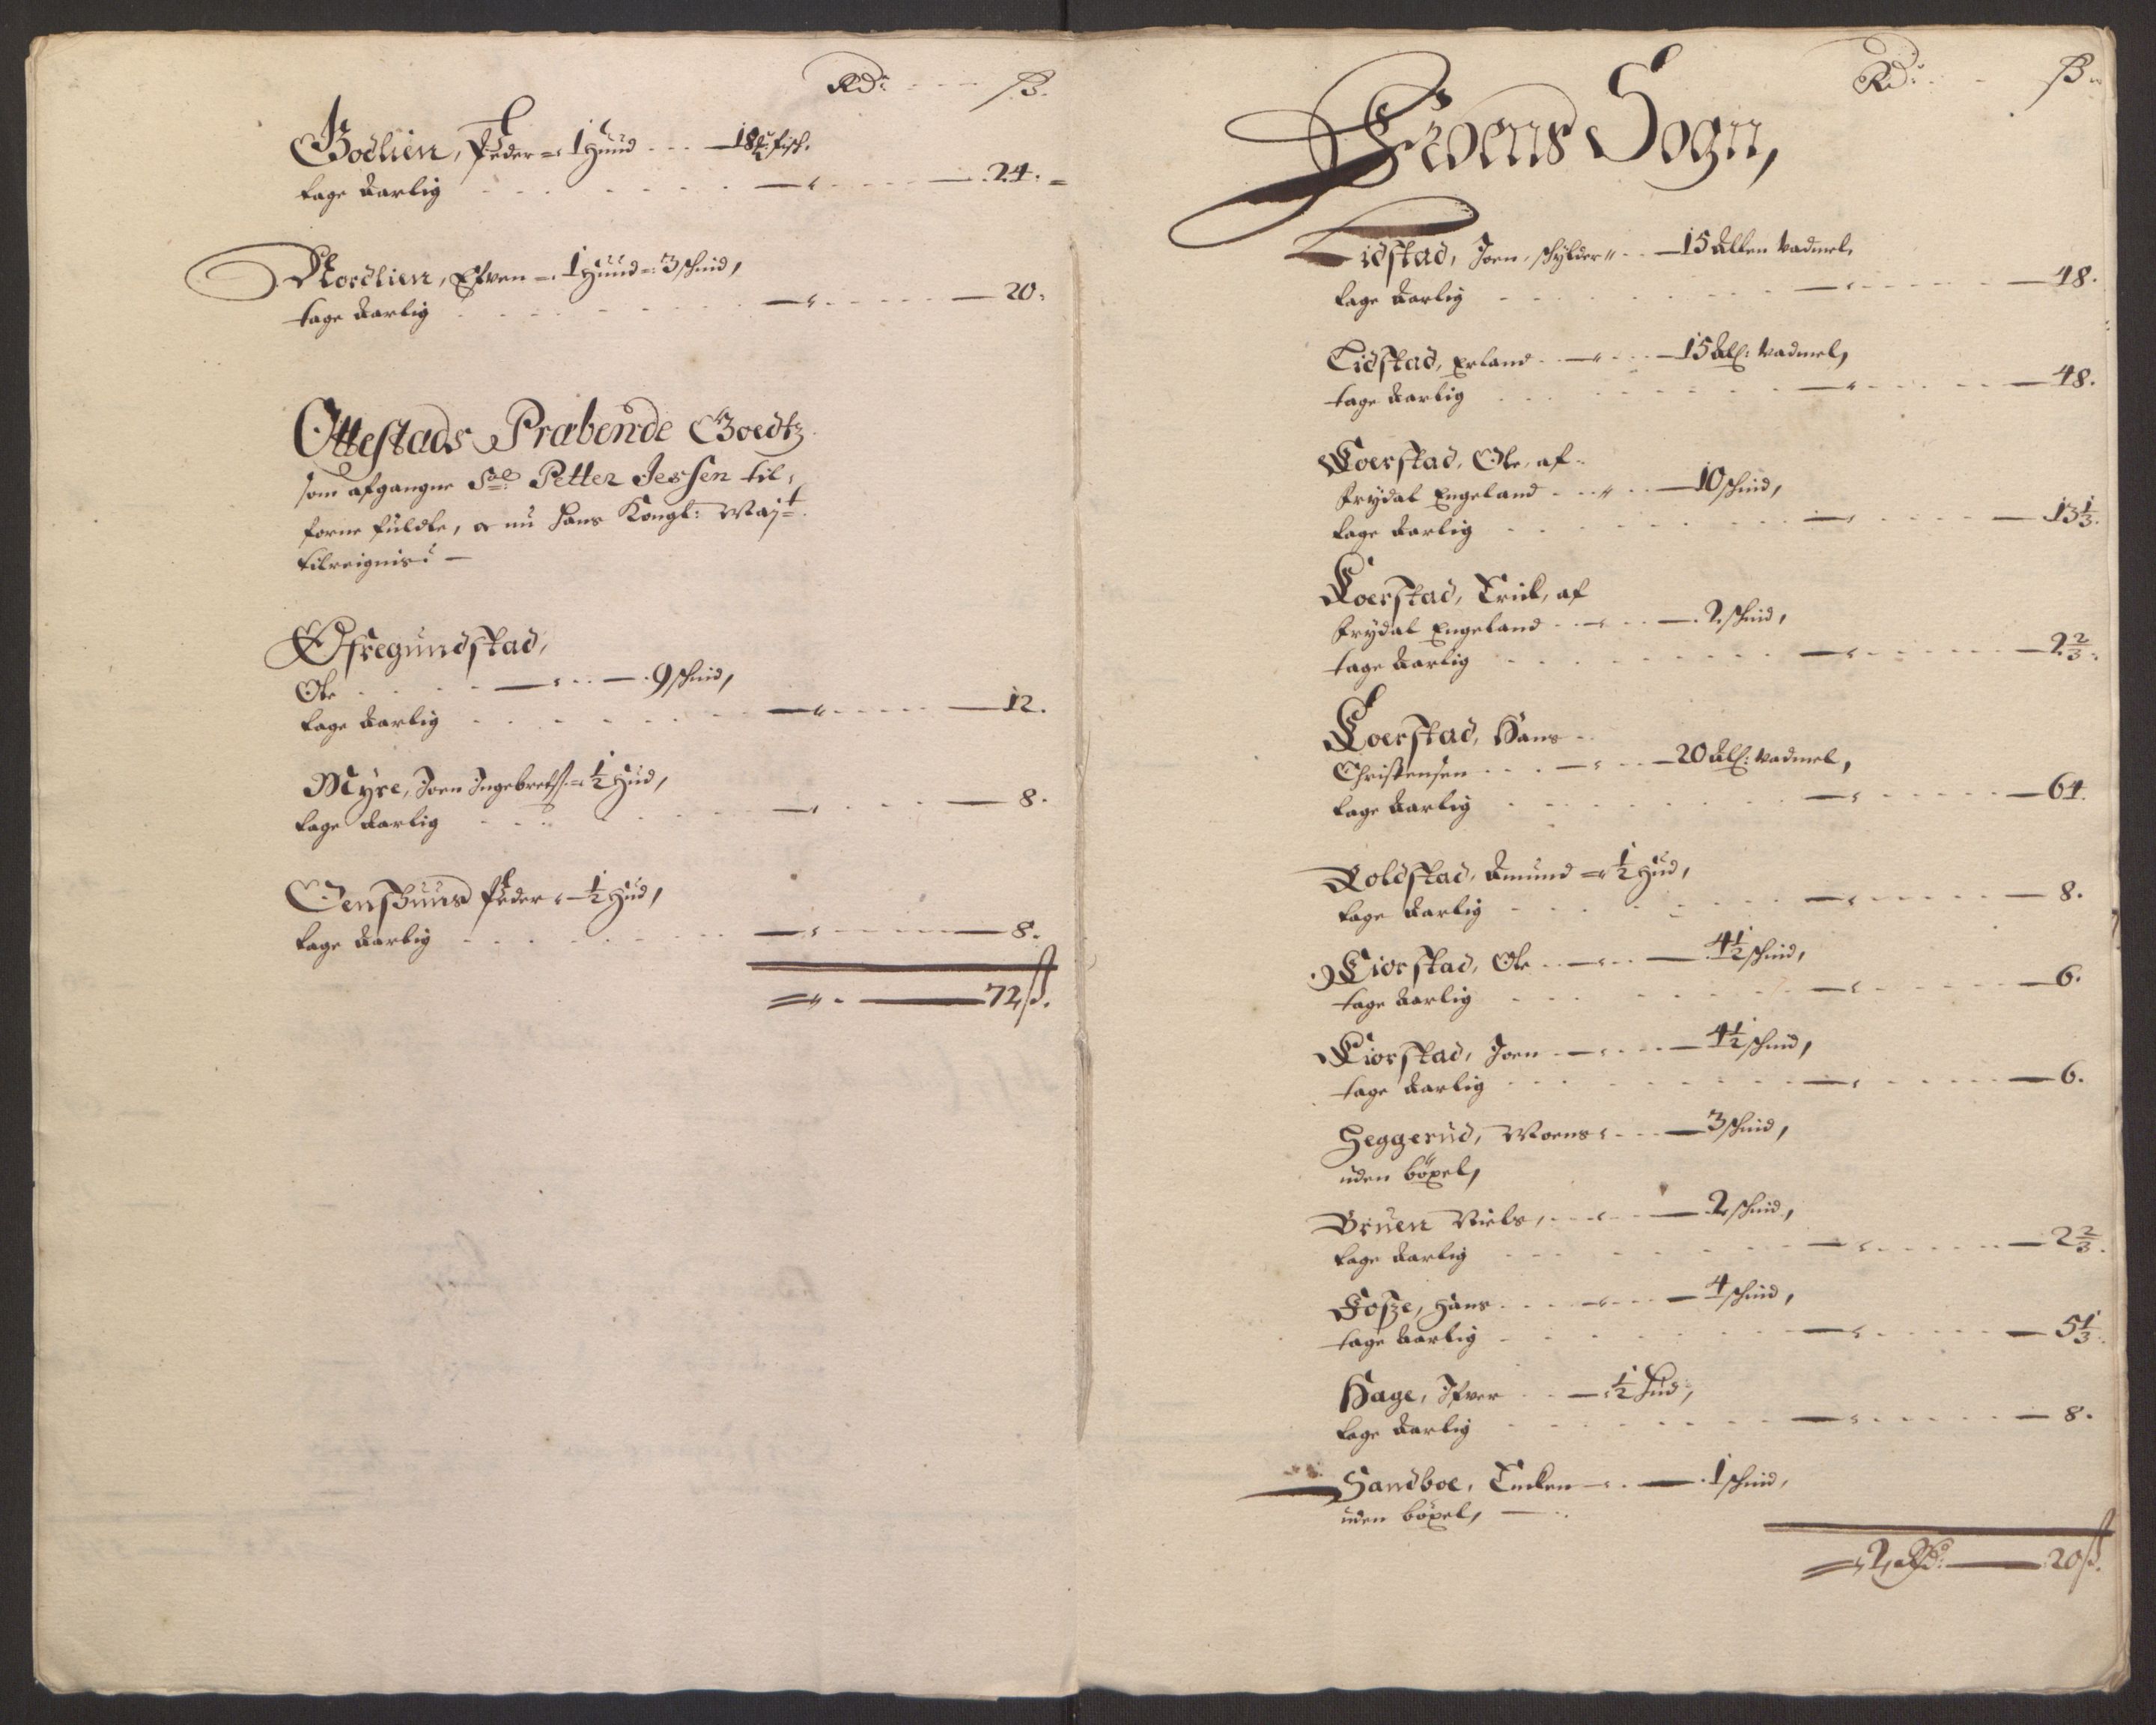 Rd: ß.
Bodlien, Peder - 1 Huud - 18 ℔ fisk.
tage Aarlig - 24.
Nordlien, Efven - 1 Huud - 3 skind,
tage Aarlig - 20.
Ottestads Præbende Goedtz
som afgangne Sal: Petter Jessen til,
forne fuldte, oc nu Hans Kongl: Mayt
tilreignis: -
Ofregundstad,
Ole - 9 skind,
tage Aarlig - 12.
Myre, Joen Ingebretss. - 1/2 Hud,
tage Aarlig - 8.
Peder - 1/2 Hud,
tage Aarlig - 8.
72 ß.
Rd: ß
Froens Sogn,
Lidstad, Joen, skylder - 15 Allen Vadmel,
tage Aarlig - 48.
Lidstad, Erland - 15 All: Vadmel,
tage Aarlig - 48.
Loerstad, Ole, af
frydal Engeland - 10 skind,
tage Aarlig - 13 1/3.
Loerstad, Trick, af
frydal Engeland - 2 skind,
tage Aarlig - 2 2/3.
Loerstad, Hans
Christensen - 20 All: Vadmel,
tage Aarlig - 64.
Roldstad, Amund - 1/2 Hud,
tage Aarlig - 8.
Kiorstad, Ole - 4 1/2 skind,
tage Aarlig - 6.
Kiorstad, Joen - 4 1/2 skind,
tage Aarlig - 6.
Heggerud, Moens - 3 skind,
uden böxel,
Bruen Niels, - 2 skind,
tage Aarlig - 2 2/3.
Fosze, Hans - 4 skind,
tage Aarlig - 5 1/3.
Hage, Ifver - 1/2 Hud,
tage Aarlig - 8.
Sandboe, - 1 skind,
uden böxel, -
2 Rd: - 20 ß.